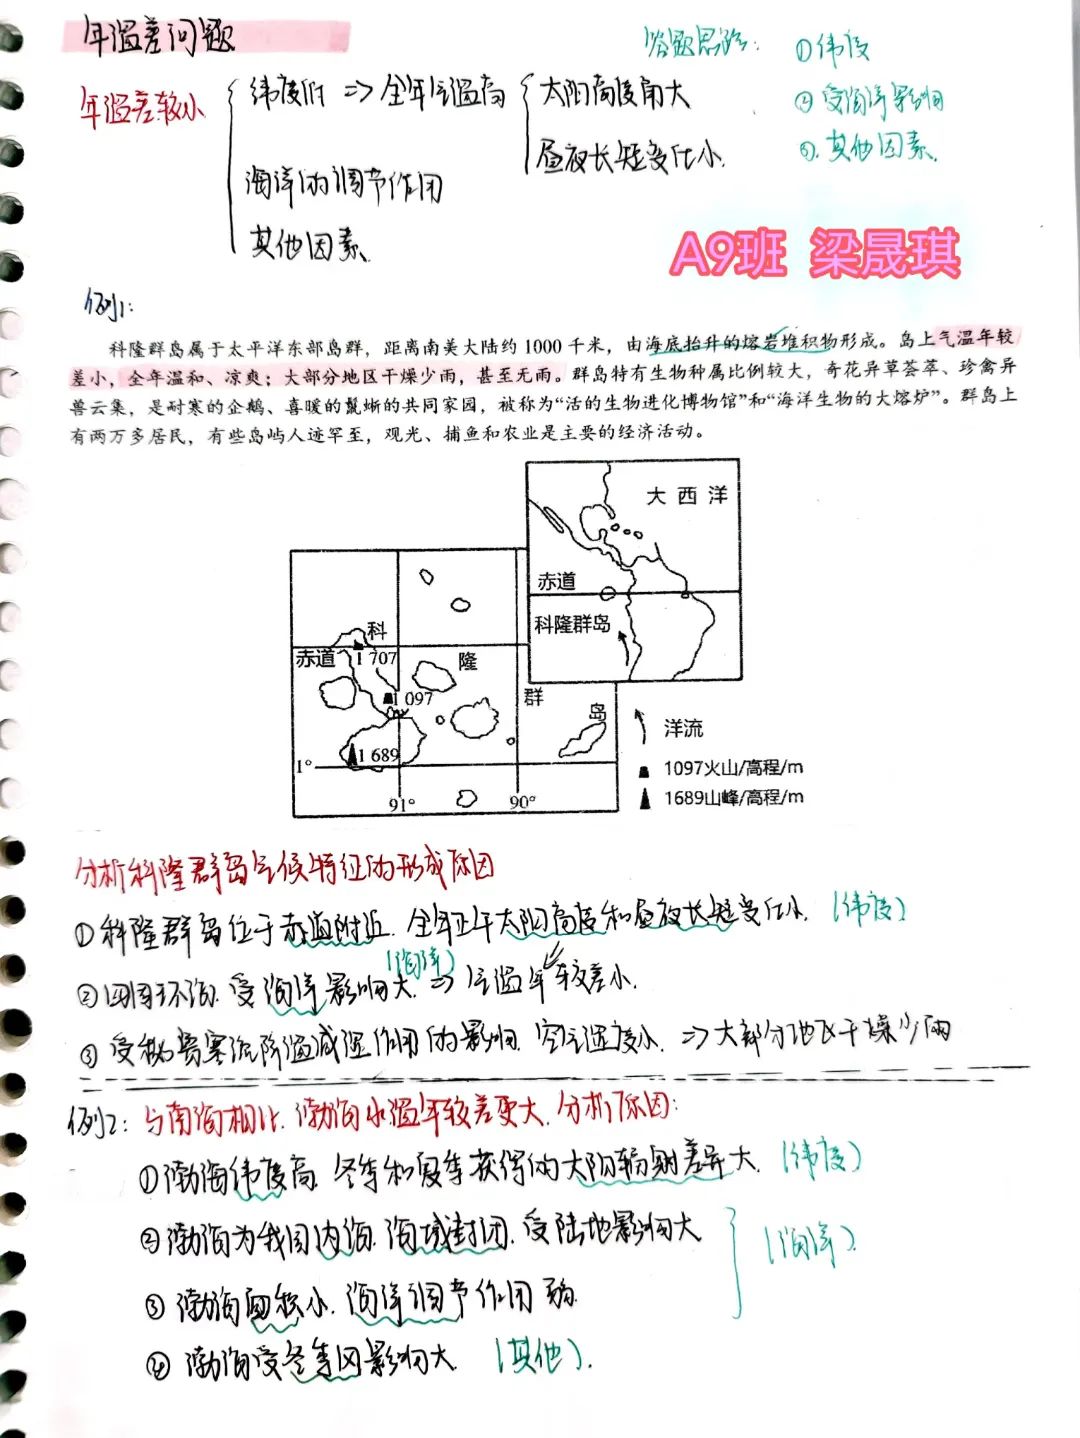 年温差问题
答题思路：①纬度
②受海洋影响
③.其他因素.
年温差较小
纬度低 => 全年气温高
太阳高度角大
昼夜长短变化小.
海洋的调节作用
其他因素.
A9班 梁晟琪
例1:
科隆群岛属于太平洋东部岛群，距离南美大陆约 1000 千米，由海底抬升的熔岩堆积物形成。岛上气温年较
差小，全年温和、凉爽；大部分地区干燥少雨，甚至无雨。群岛特有生物种属比例较大，奇花异草荟萃、珍禽异
兽云集，是耐寒的企鹅、喜暖的鬣蜥的共同家园，被称为“活的生物进化博物馆”和“海洋生物的大熔炉”。群岛上
有两万多居民，有些岛屿人迹罕至，观光、捕鱼和农业是主要的经济活动。
大西洋
赤道
科隆群岛
科
赤道
1 707
隆
1 097
群
岛
1 689
1°
91°
90°
洋流
1097火山/高程/m
1689山峰/高程/m
分析科隆群岛气候特征的形成原因
①科隆群岛位于赤道附近. 全年正午太阳高度和昼夜长短变化小. (纬度)
(海洋)
②四周环海. 受海洋影响大. => 气温年较差小.
③受秘鲁寒流降温减湿作用的影响. 空气湿度小. => 大部分地区干燥少雨
例2: 与南海相比. 渤海水温年较差更大. 分析原因:
①渤海纬度高. 冬季和夏季获得的太阳辐射差异大. (纬度)
②渤海为我国内海. 海域封闭. 受陆地影响大
(海洋).
③ 渤海面积小. 海洋调节作用弱.
④ 渤海受冬季风影响大. (其他).